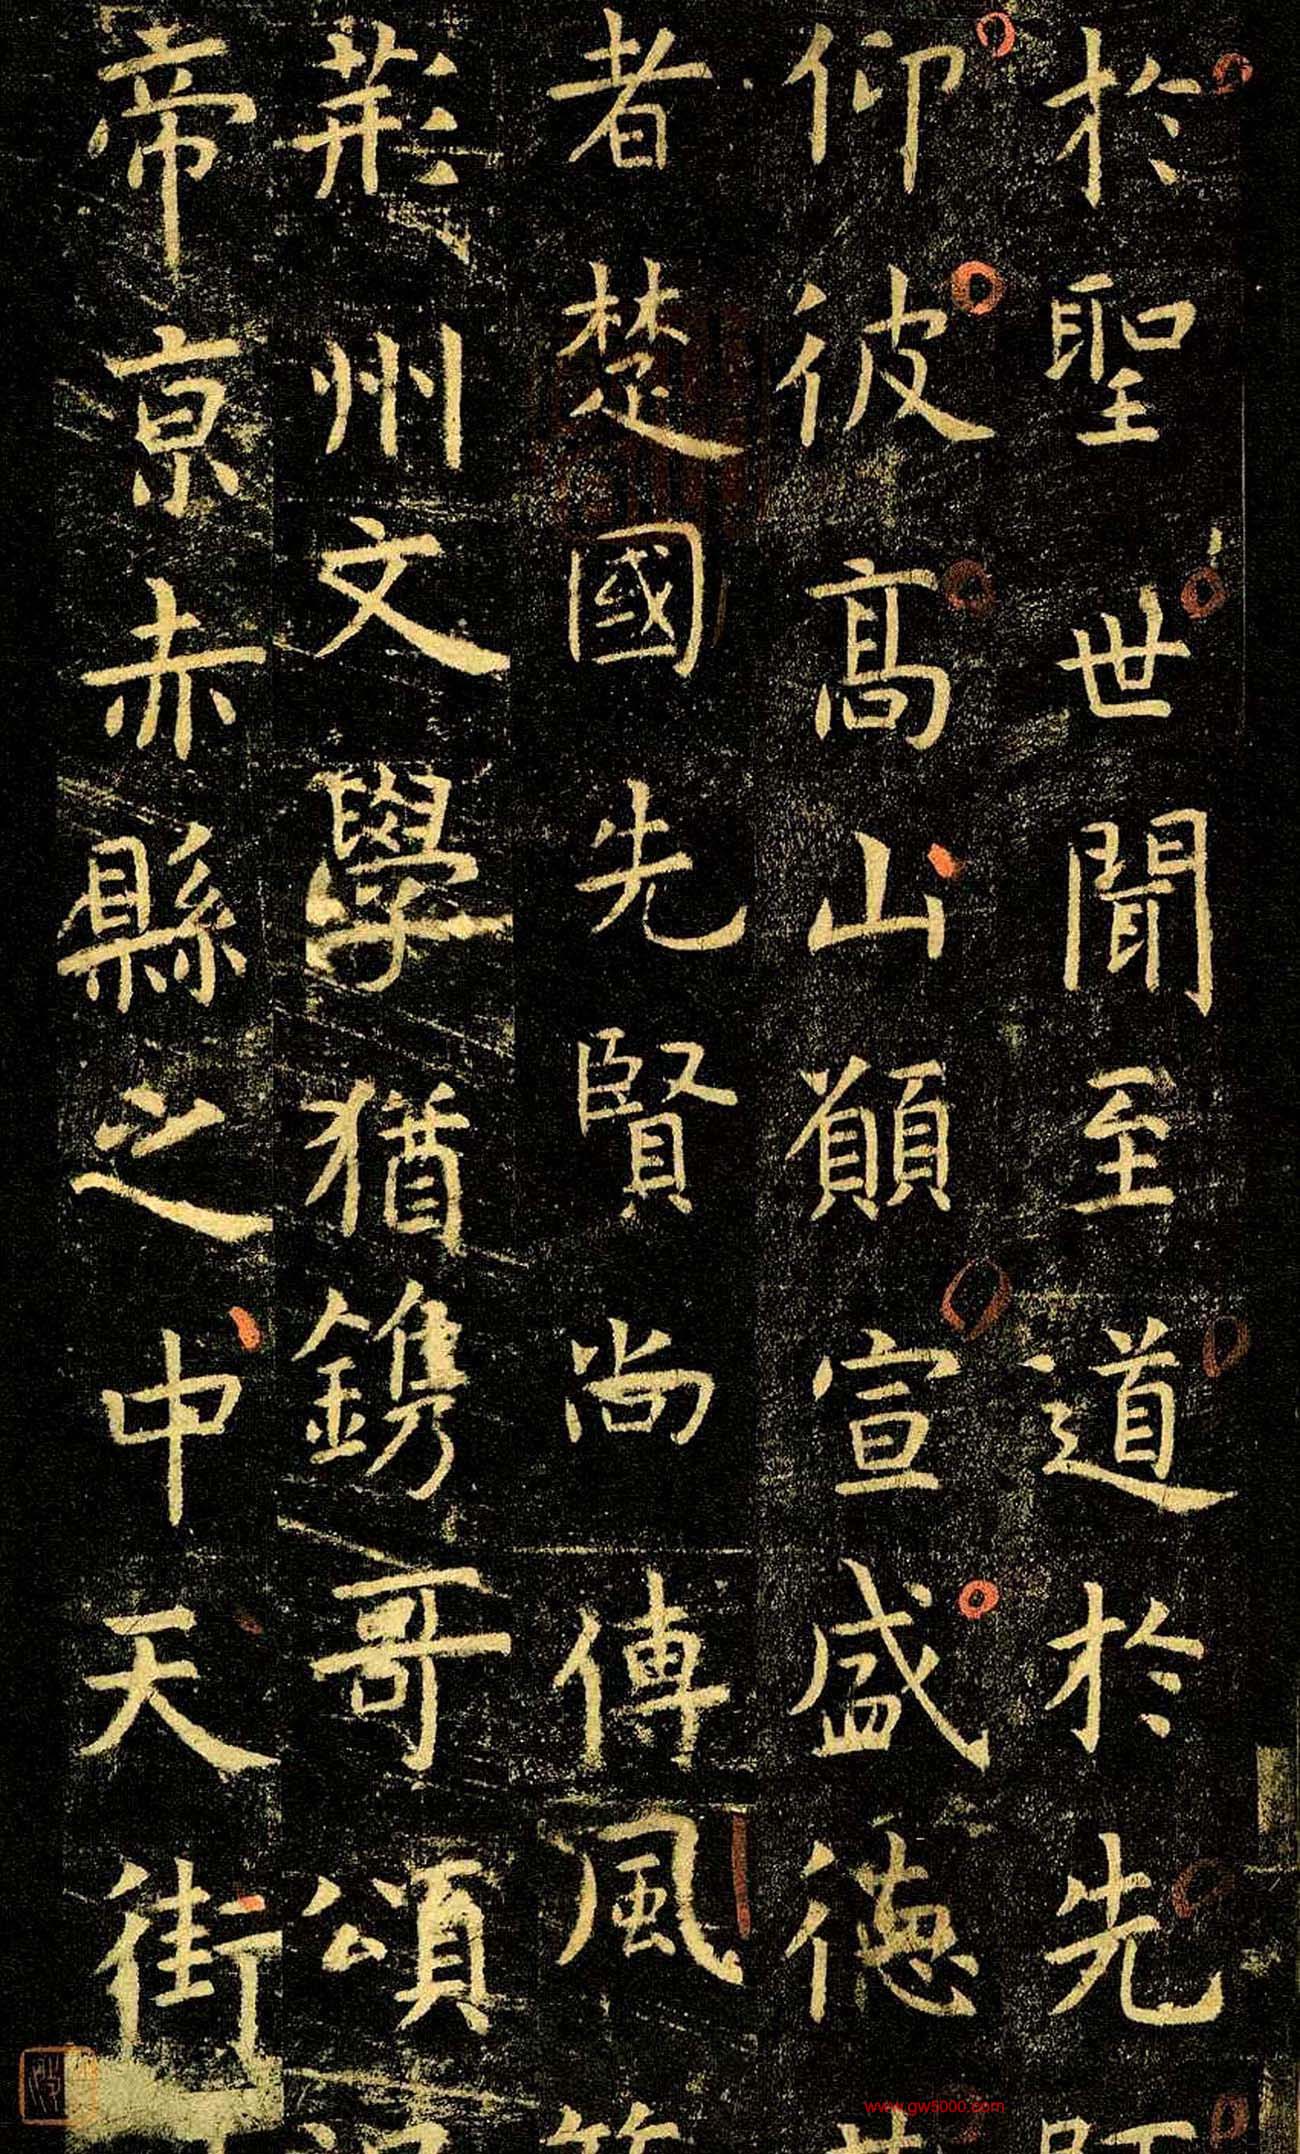 於聖世聞至道於先
仰彼高山願宣盛德
者楚國先賢尚傳風
荊州文學猶鐫哥頌
帝京赤縣之中天街
www.gw5000.com